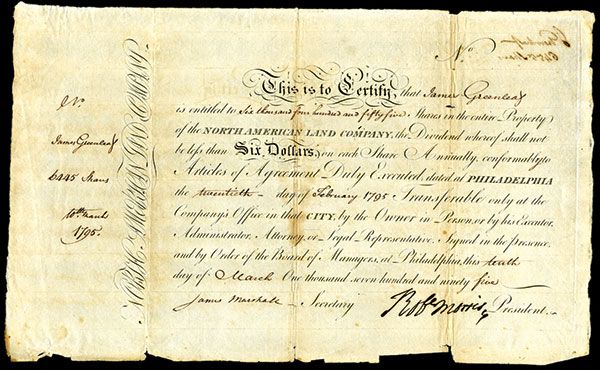 No.
This is to Certify, that James Greenleaf
is entitled to Six thousand four hundred and fifty five Shares in the entire Property
of the NORTH AMERICAN LAND COMPANY, the Dividend whereof shall not
be less than Six Dollars, on each Share Annually, conformably to
Articles of Agreement Duly Executed, dated at PHILADELPHIA
the twentieth day of February 1795 Transferable only at the
Company's Office in that CITY, by the Owner in Person, or by his Executor,
Administrator, Attorney, or Legal Representative. Signed in the presence
and by Order of the Board of Managers, at Philadelphia, this tenth
day of March One thousand seven hundred and ninety five
James Marshall Secretary
Robt Morris, President.
No.
James Greenleaf
Shares
10th March
1795.
NORTH AMERICAN LAND COMPANY